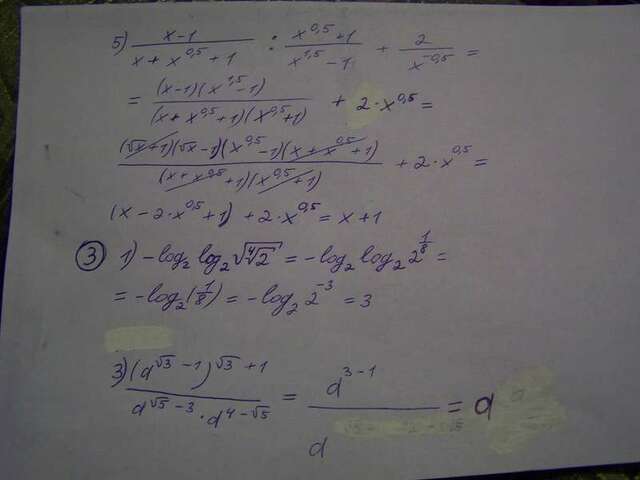 5) (x-1)/(x+x^0,5+1) : (x^0,5+1)/(x^1,5-1) + 2/x^-0,5 =
= ((x-1)(x^1,5-1))/((x+x^0,5+1)(x^0,5+1)) + 2·x^0,5 =
((√x+1)(√x-1)(x^0,5-1)(x+x^0,5+1))/((x+x^0,5+1)(x^0,5+1)) + 2·x^0,5 =
(x-2·x^0,5+1) + 2·x^0,5 = x+1
③ 1) -log₂ log₂ √(∜2) = -log₂ log₂ 2^(1/8) =
= -log₂(1/8) = -log₂ 2^-3 = 3
3) (d^(√3-1))^(√3+1)/(d^(√5-3)·d^(4-√5)) = d^(3-1)/d = d